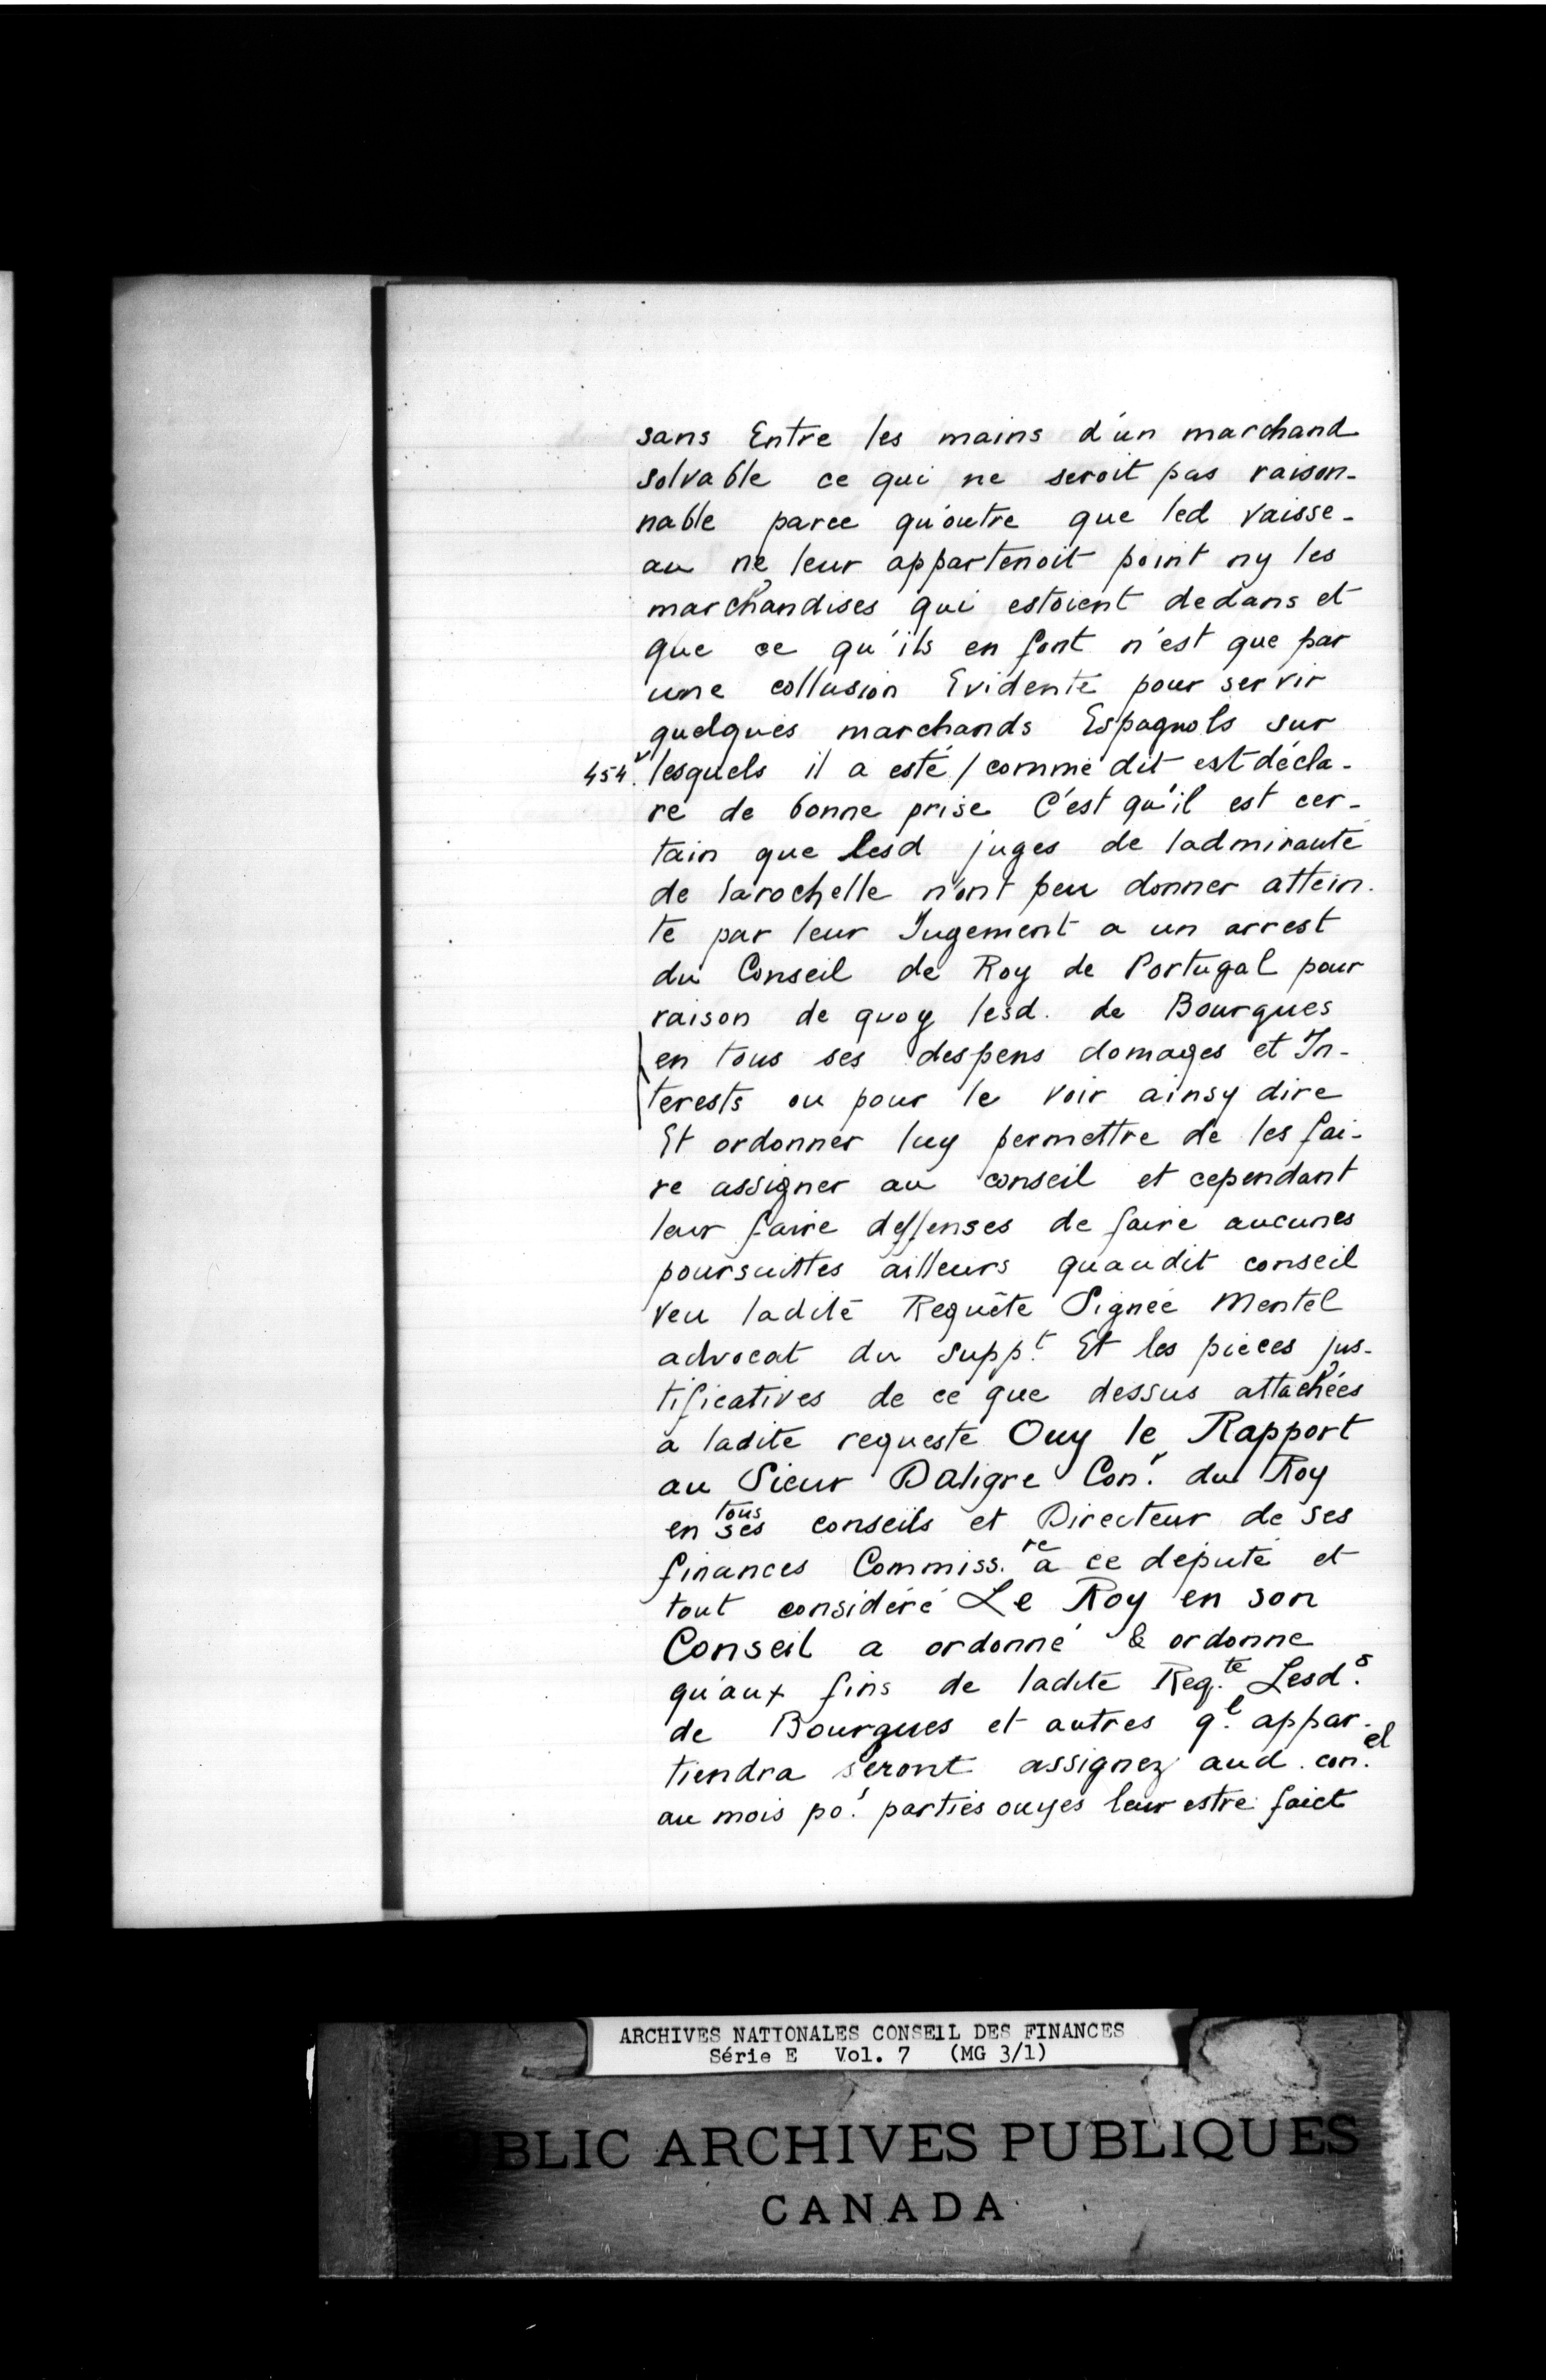 sans Entre les mains d'un marchand
solvable ce qui ne seroit pas raison-
nable parce qu'outre que led vaisse-
au ne leur appartenoit point ny les
marchandises qui estoient dedans et
que ce qu'ils en font n'est que par
une collusion Evidente pour servir
quelques marchands Espagnols sur
454v. lesquels il a esté / comme dit est décla-
ré de bonne prise C'est qu'il est cer-
tain que lesd juges de ladmirauté
de larochelle n'ont peu donner attein-
te par leur Jugement a un arrest
du Conseil de Roy de Portugal pour
raison de quoy lesd. de Bourgues
en tous ses despens domages et In-
terests ou pour le voir ainsy dire
Et ordonner luy permettre de les fai-
re assigner au conseil et cependant
leur faire deffenses de faire aucunes
poursuittes ailleurs quaudit conseil
veu ladite Requête Signée Mentel
advocat du supp.t Et les pièces jus-
tificatives de ce que dessus attachées
a ladite requeste Ouy le Rapport
au Sieur Daligre Con.r du Roy
en tous ses conseils et Directeur de ses
finances Commiss.re à ce député et
tout considéré Le Roy en son
Conseil a ordonné & ordonne
qu'aux fins de ladite Req.te Lesd.s
de Bourgues et autres q.l appar-
tiendra seront assignez aud. con.el
au mois po.r parties ouyes leur estre faict
ARCHIVES NATIONALES CONSEIL DES FINANCES
Série E Vol. 7 (MG 3/1)
BLIC ARCHIVES PUBLIQUES
CANADA